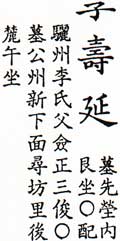 子壽延
墓先塋内
艮坐○配
驪州李氏父僉正三俊○
墓公州新下面尋坊里後
麓午坐